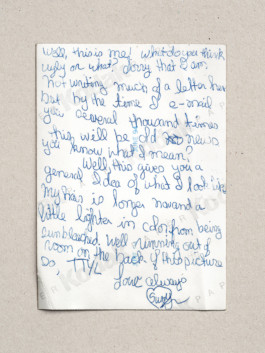 Well, this is me! what do you think
ugly or what? Sorry that I am
not writing much of a letter here
but by the time I e-mail
you several thousand times
this will be old news
you know what I mean?
Well, this gives you a
general Idea of what I look like
My hair is longer now and a
little lighter in color from being
sunbleached. Well running out of
room on the back of this picture
So TTYL
Love always